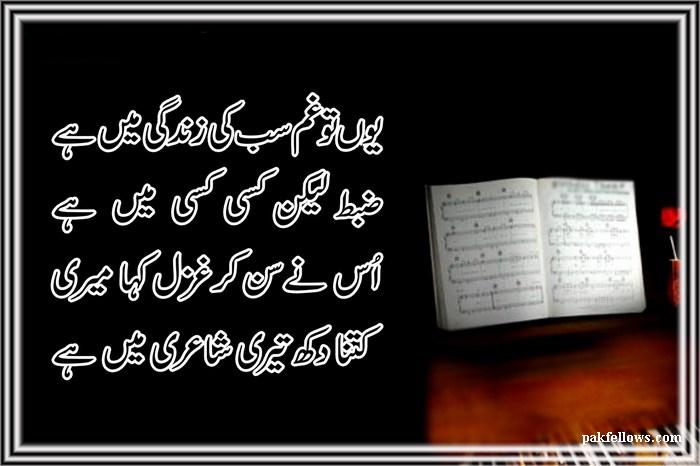 یوں تو غم سب کی زندگی میں ہے
ضبط لیکن کسی کسی میں ہے
اُس نے سن کر غزل کہا میری
کتنا دکھ تیری شاعری میں ہے
pakfellows.com